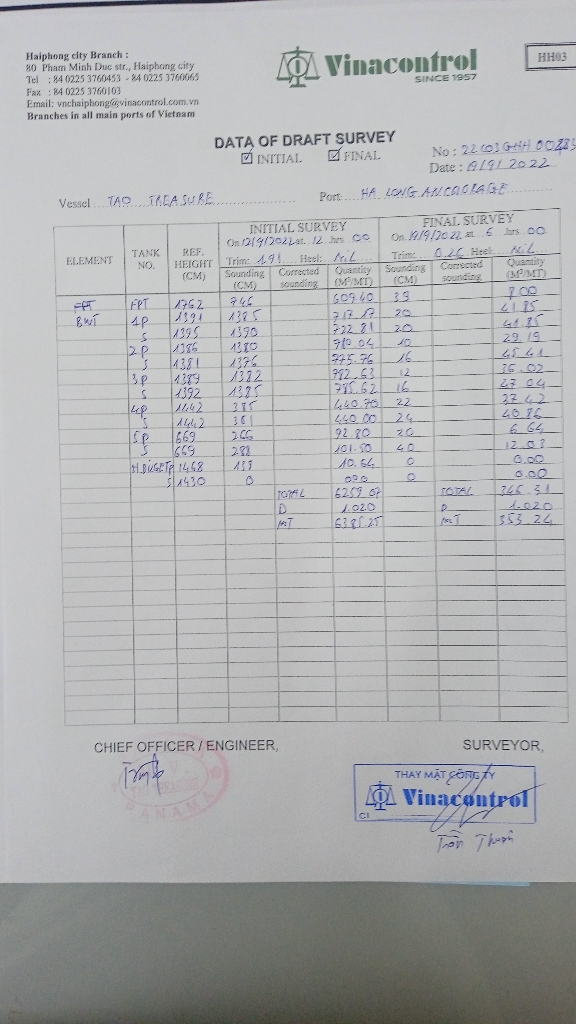 Haiphong city Branch :
80 Pham Minh Duc str., Haiphong city
Tel : 84 0225 3760453 - 84 0225 3760065
Fax : 84 0225 3760103
Email: vnchaiphong@vinacontrol.com.vn
Branches in all main ports of Vietnam
Vinacontrol
SINCE 1957
HH03
DATA OF DRAFT SURVEY
☑ INITIAL ☑ FINAL
No :
Date : 19/9/2022
Vessel : TAO TREASURE Port: HA LONG ANCHORAGE
ELEMENT TANK NO. REF. HEIGHT (CM) INITIAL SURVEY FINAL SURVEY
On 12/9/2022 at 12 hrs 00 On 19/9/2022 at 6 hrs 00
Trim: 1.91 Heel: NiL Trim: 0.26 Heel: NiL
Sounding (CM) Corrected sounding Quantity (M³/MT) Sounding (CM) Corrected sounding Quantity (M³/MT)
FPT 1762 746 609.40 39 8.00
BWT 1P 1391 1385 717.17 20 41.85
S 1395 1390 722.81 20 41.85
2P 1386 1380 780.04 10 29.19
S 1381 1376 775.76 16 45.41
3P 1389 1382 782.63 12 35.02
S 1392 1385 785.62 16 47.04
4P 1442 385 440.70 22 37.42
S 1442 361 440.00 24 40.86
5P 669 266 92.80 20 6.64
S 669 288 101.50 40 12.03
P 1468 139 10.64 0 0.00
S 1430 0 0.00 0 0.00
TOTAL 6259.07 TOTAL 346.31
D 1.020 D 1.020
MT 6385.25 MT 353.24
CHIEF OFFICER / ENGINEER, SURVEYOR,
PANAMA
THAY MẶT CÔNG TY
Vinacontrol
CI
Trần Thanh